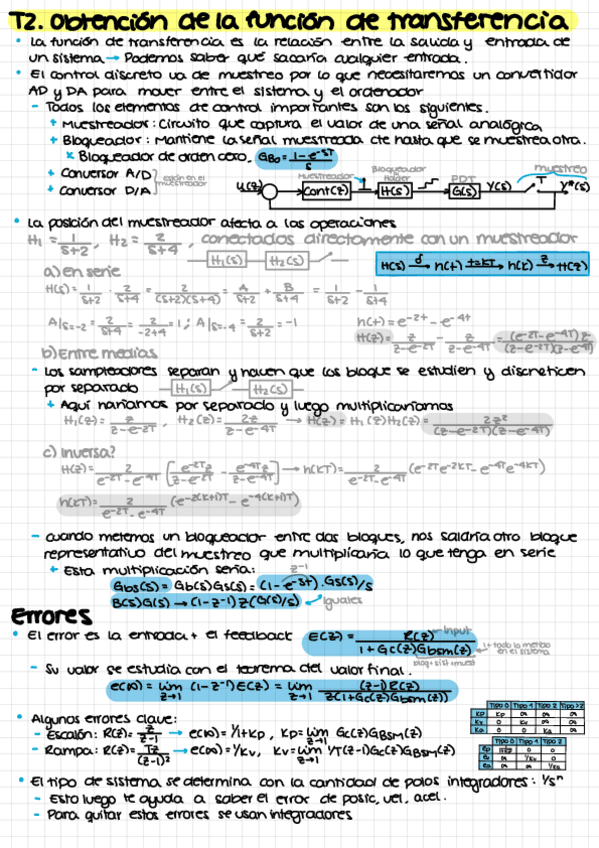 T2. Obtención de la función de transferencia
• La función de transferencia es la relación entre la salida y entrada de
un sistema → Podemos saber que sacaría cualquier entrada.
• El control discreto va de muestreo por lo que necesitaremos un convertidor
AD y DA para mover entre el sistema y el ordenador
- Todos los elementos de control importantes son los siguientes.
+ Muestreador: Circuito que captura el valor de una señal analógica
+ Bloqueador: Mantiene la señal muestreada cte hasta que se muestrea otra.
x Bloqueador de orden cero, GBo = (1-e^-ST)/S
+ Conversor A/D
+ Conversor D/A
están en el muestreador
U(z) Muestreador Cont(z) Bloqueador Holder H(s) PDT G(s) Y(s) T muestreo Y*(s)
• La posición del muestreador afecta a las operaciones
H1 = 1/(S+2), H2 = 2/(S+4), conectados directamente con un muestreador
H1(s) H2(s)
H(s) →δ h(t) →t=kT h(k) →z H(z)
a) En serie
H(s) = 1/(S+2) · 2/(S+4) = 2/((S+2)(S+4)) = A/(S+2) + B/(S+4) = 1/(S+2) - 1/(S+4)
A|S=-2 = 2/(S+4) = 2/(-2+4) = 1; A|S=-4 = 2/(S+2) = -1
h(t) = e^-2t - e^-4t
H(z) = z/(z-e^-2T) - z/(z-e^-4T) = (e^-2T-e^-4T)z/((z-e^-2T)(z-e^-4T))
b) Entre medias
- Los sampleadores separan y hacen que los bloque se estudien y discreticen
por separado H1(s) H2(s)
+ Aquí haríamos por separado y luego multiplicaríamos
H1(z) = z/(z-e^-2T), H2(z) = 2z/(z-e^-4T) → H(z) = H1(z)H2(z) = 2z²/((z-e^-2T)(z-e^-4T))
c) Inversa?
H(z) = 2/(e^-2T-e^-4T) [e^-2T z/(z-e^-2T) - e^-4T z/(z-e^-4T)] → h(kT) = 2/(e^-2T-e^-4T) (e^-2T e^-2kT - e^-4T e^-4kT)
h(kT) = 2/(e^-2T-e^-4T) (e^-2(k+1)T - e^-4(k+1)T)
- Cuando metemos un bloqueador entre dos bloques, nos saldría otro bloque
representativo del muestreo que multiplicaría lo que tenga en serie
+ Esta multiplicación sería: z^-1
Gbs(s) = Gb(s)Gs(s) = (1-e^-st).Gs(s)/s
B(s)G(s) → (1-z^-1)Z(G(s)/s) iguales
Errores
• El error es la entrada + el feedback E(z) = R(z)/(1+Gc(z)Gbsm(z))
input
1 + todo lo metido en el sistema
bloq+sist+muest
- Su valor se estudia con el teorema del valor final.
e(∞) = lim z→1 (1-z^-1)E(z) = lim z→1 (z-1)R(z)/(z(1+Gc(z)Gbsm(z)))
• Algunos errores clave:
- Escalón: R(z) = z/(z-1) → e(∞) = 1/1+Kp, Kp = lim z→1 Gc(z)GBSM(z)
- Rampa: R(z) = Tz/(z-1)² → e(∞) = 1/Kv, Kv = lim z→1 1/T(z-1)Gc(z)GBSM(z)
Tipo 0 Tipo 1 Tipo 2 Tipo>2
Kp Kp ∞ ∞ ∞
Kv 0 Kv ∞ ∞
Ka 0 0 Ka ∞
Tipo 0 Tipo 1 Tipo 2
ep 0 0
ev ∞ 1/Kv 0
ea ∞ ∞ 1/Ka
• El tipo de sistema se determina con la cantidad de polos integradores: 1/sⁿ
- Esto luego te ayuda a saber el error de posic, vel, acel.
- Para quitar estos errores se usan integradores